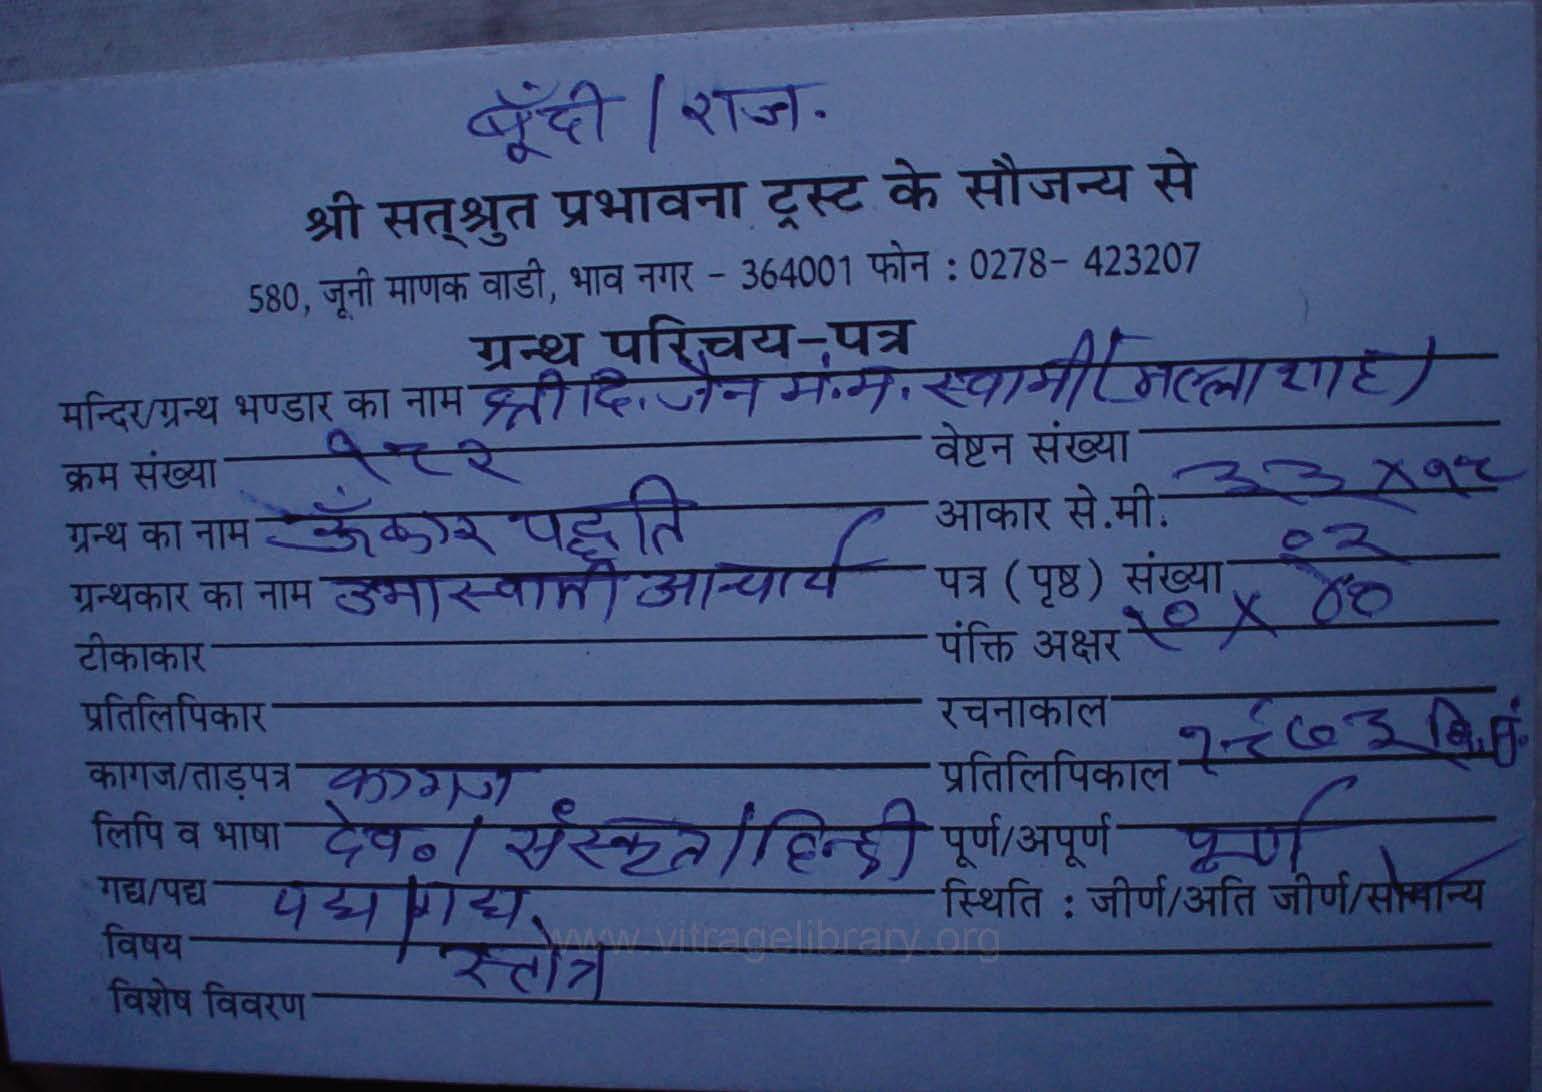 बूँदी / राज.
श्री सत्श्रुत प्रभावना ट्रस्ट के सौजन्य से
580, जूनी माणक वाडी, भाव नगर - 364001 फोन : 0278- 423207
ग्रन्थ परिचय-पत्र
मन्दिर/ग्रन्थ भण्डार का नाम श्री दि. जैन मं. म. स्वामी (मल्लाशाह)
क्रम संख्या १८२ वेष्टन संख्या
ग्रन्थ का नाम ऊँकार पद्धति आकार से.मी. 33 X १८
ग्रन्थकार का नाम उमास्वामी आचार्य पत्र (पृष्ठ) संख्या ०२
टीकाकार पंक्ति अक्षर १० X ४०
प्रतिलिपिकार रचनाकाल
कागज/ताड़पत्र कागज प्रतिलिपिकाल १९७३ वि.सं.
लिपि व भाषा देव० / संस्कृत / हिन्दी पूर्ण/अपूर्ण पूर्ण
गद्य/पद्य पद्य / गद्य स्थिति : जीर्ण/अति जीर्ण/सामान्य
विषय स्तोत्र
www.vitragelibrary.org
विशेष विवरण